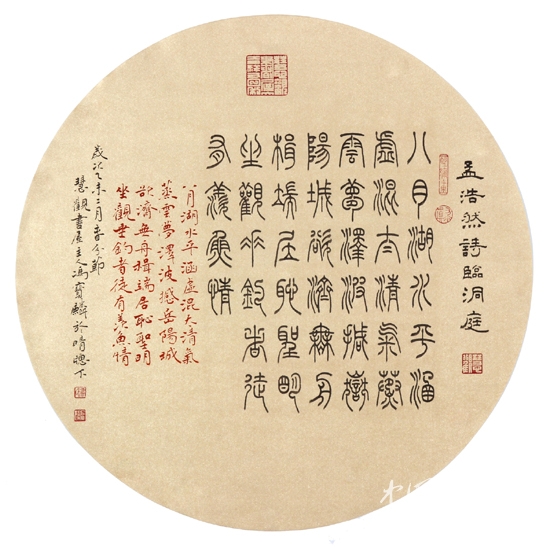 孟浩然詩臨洞庭
八月湖水平涵
虛混太清氣蒸
雲夢澤波撼嶽
陽城欲濟無舟
楫端居恥聖明
坐觀垂釣者徒
有羨魚情
八月湖水平涵虛混太清氣
蒸雲夢澤波撼岳陽城
欲濟無舟楫端居恥聖明
坐觀垂釣者徒有羨魚情
歲次乙未二月春分節
慧觀書屋主人馮寶麟於晴牕下